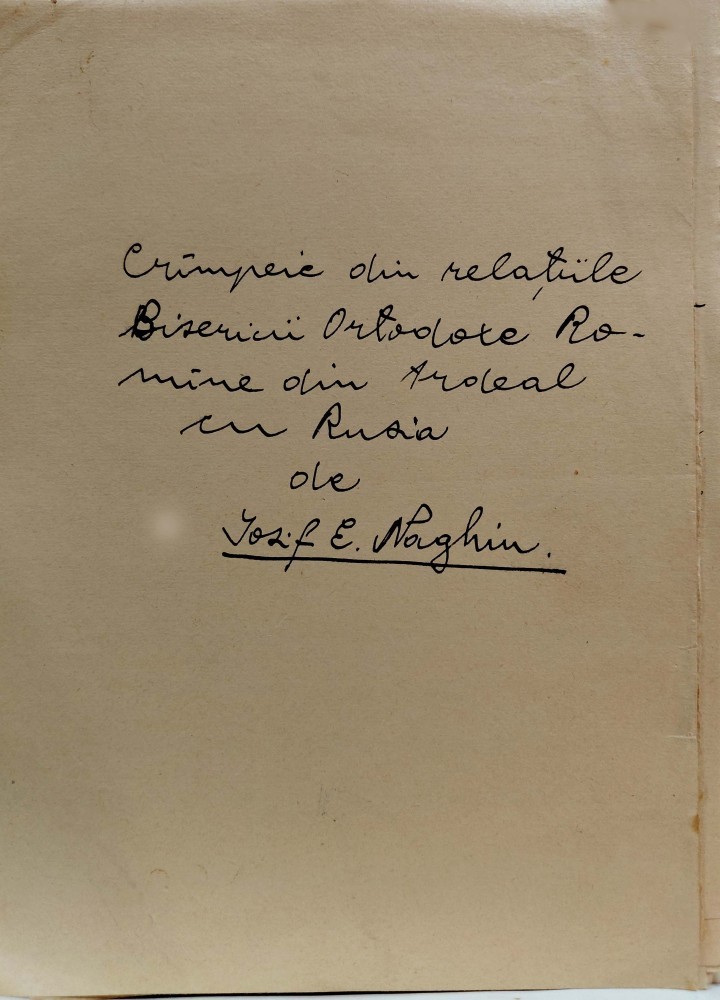 Crîmpeie din relațiile
Bisericii Ortodoxe Ro-
mîne din Ardeal
cu Rusia
de
Iosif E. Naghiu.